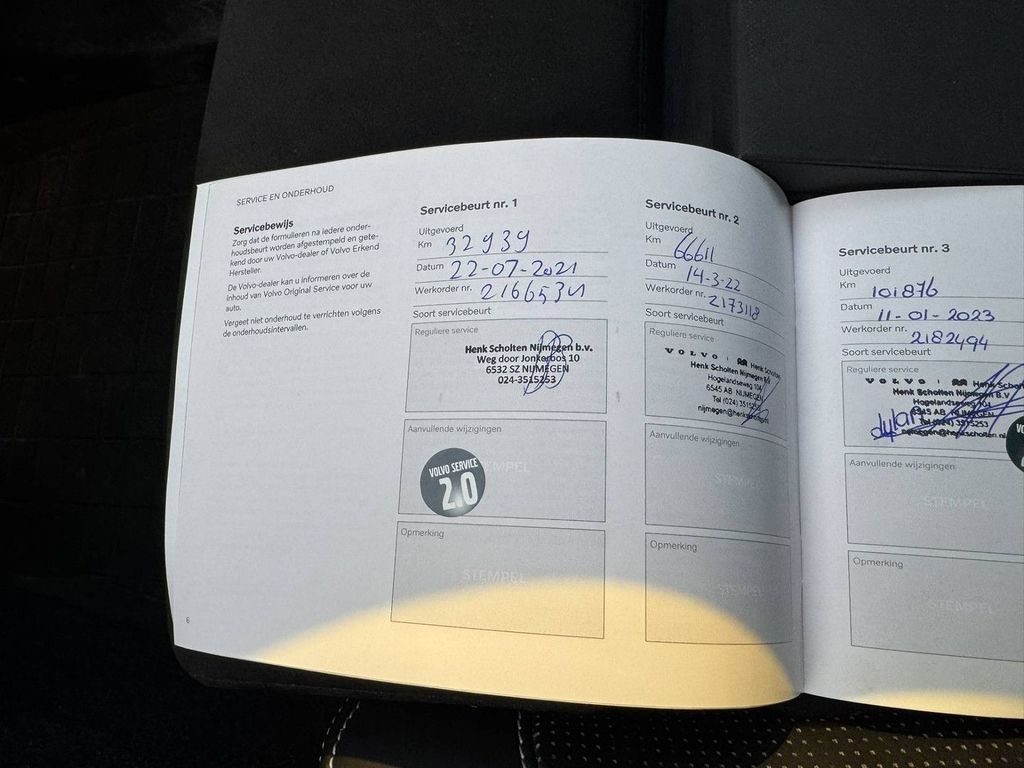 SERVICE EN ONDERHOUD
Servicebewijs
Zorg dat de formulieren na iedere onder-
houdsbeurt worden afgestempeld en gete-
kend door uw Volvo-dealer of Volvo Erkend
Hersteller.
De Volvo-dealer kan u informeren over de
inhoud van Volvo Original Service voor uw
auto.
Vergeet niet onderhoud te verrichten volgens
de onderhoudsintervallen.
6
Servicebeurt nr. 1
Uitgevoerd
Km 32939
Datum 22-07-2021
Werkorder nr. 2166534
Soort servicebeurt
Reguliere service
Henk Scholten Nijmegen b.v.
Weg door Jonkerbos 10
6532 SZ NIJMEGEN
024-3515253
Aanvullende wijzigingen
STEMPEL
VOLVO SERVICE
2.0
Opmerking
STEMPEL
Servicebeurt nr. 2
Uitgevoerd
Km 66611
Datum 14-3-22
Werkorder nr. 2173118
Soort servicebeurt
Reguliere service
VOLVO Henk Scholten
Henk Scholten Nijmegen B.V
Hogelandseweg 104
6545 AB NIJMEGEN
Tel (024) 3515253
nijmegen@henkscholten.nl
Aanvullende wijzigingen
STEMPEL
Opmerking
STEMPEL
Servicebeurt nr. 3
Uitgevoerd
Km 101876
Datum 11-01-2023
Werkorder nr. 2182494
Soort servicebeurt
Reguliere service
VOLVO Henk Schol
Henk Scholten Nijmegen B.V
Hogelandseweg 104
6545 AB NIJMEGEN
Tel (024) 3515253
nijmegen@henkscholten.nl
dylan
Aanvullende wijzigingen
STEMPEL
Opmerking
STEMPEL